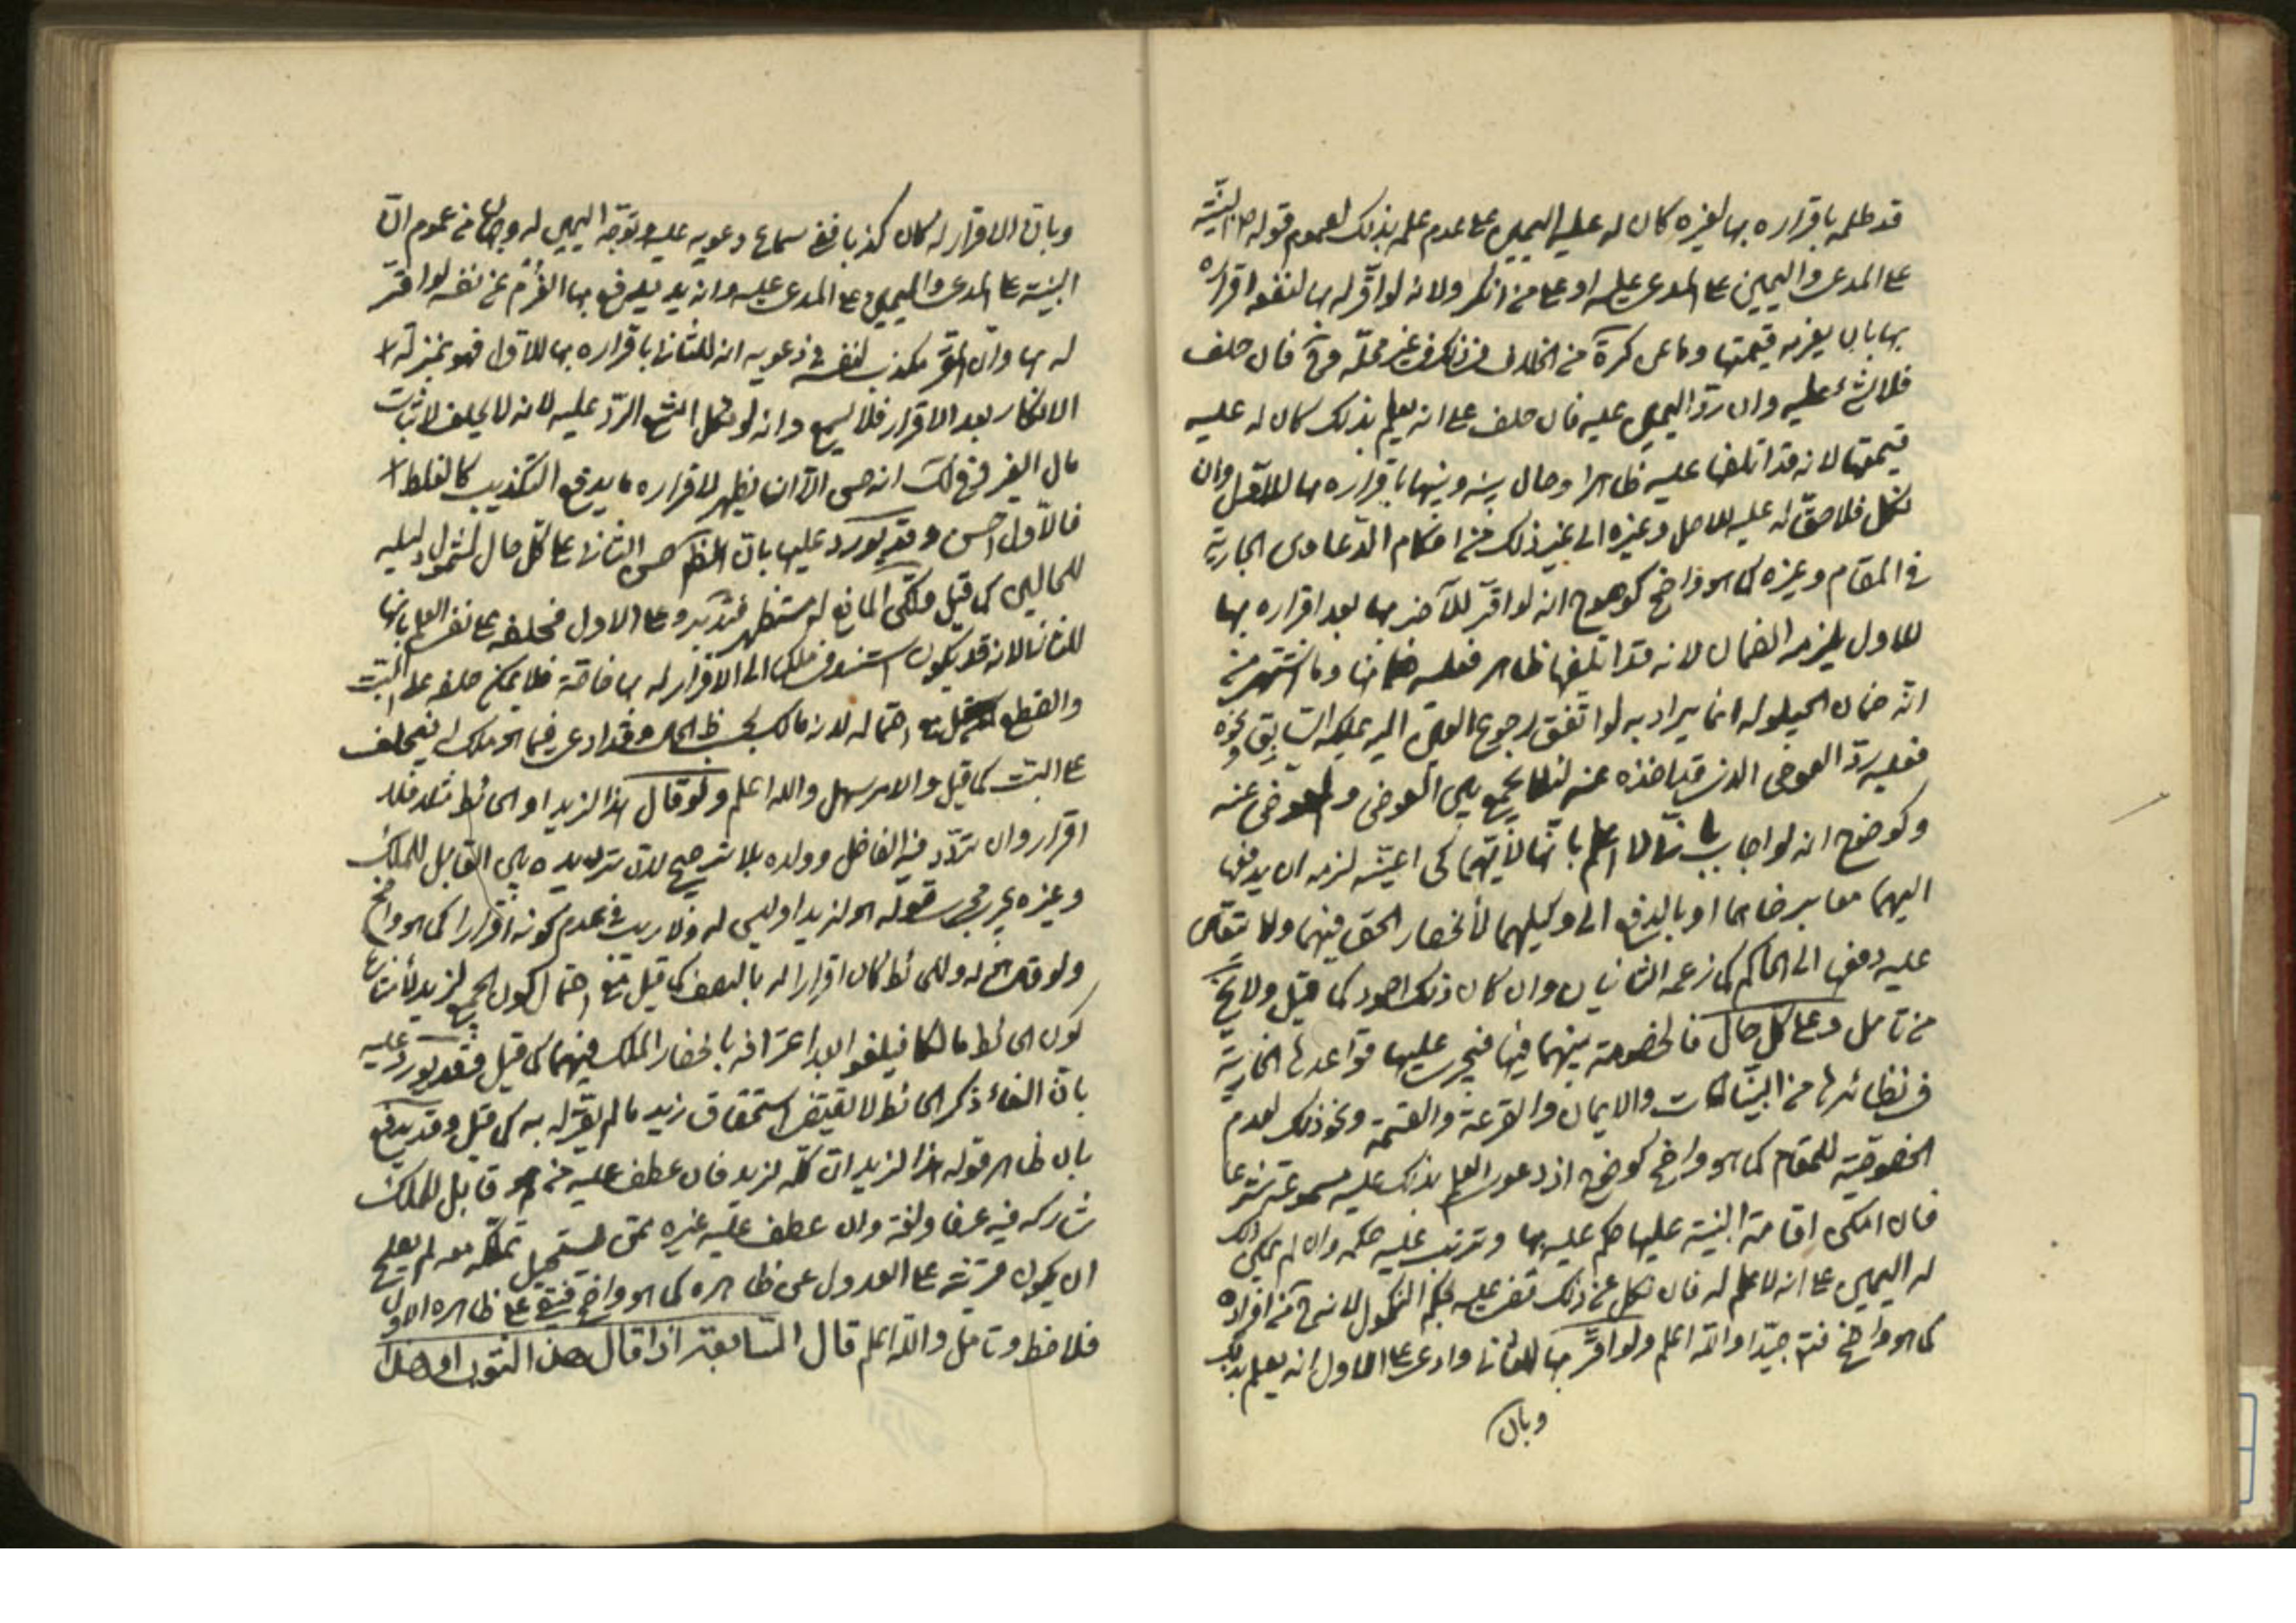 قد ظلمه باقراره بها لغيره كان له عليه اليمين على عدم علمه بذلك لعموم قوله ص البينة
على المدعى واليمين على المدعى عليه او على من انكر ولانه لو اقر له بها لنفعه اقراره
بها بان يغرمه قيمتها وما عن كرة من الخلاف في ذلك في غير محله وح فان حلف
فلا شئ عليه وان رد اليمين عليه فان حلف على انه يعلم بذلك كان له عليه
قيمتها لانه قد اتلفها عليه ظاهرا وحال بينه وبينها باقراره بها للاول وان
نكل فلا حق له عليه للاصل وغيره الى غير ذلك من احكام الدعاوى الجارية
في المقام وغيره كما هو واضح كوضوح انه لو اقر للآخر بها بعد اقراره بها
للاول يلزمه الضمان لانه قد اتلفها ظاهر فعليه ضمانها وما اشتهر من
انه ضمان الحيلوله انما يراد به لو اتفق رجوع العين اليه بملكه السابق ونحوه
فعليه رد العوض الذي قد اخذه منه لئلا يجمع بين العوض والمعوض عنه
وكوضوح انه لو اجاب لا اعلم بانها لأيهما كى اعينه لزمه ان يدفعها
اليهما معا برضاهما او بالدفع الى وكيلهما لأنحصار الحق فيهما ولا يتعين
عليه دفعها الى الحاكم كما زعمه الثانيان وان كان ذلك اجود كما قيل ولا يخ
من تامل وعلى كل حال فالخصومة بينهما فيها فيجرى عليها قواعدها الجارية
في نظائرها من البينات والايمان والقرعة والقسمة ونحو ذلك لعدم
الخصوصية للمقام كما هو واضح كوضوح ان دعوى العلم بذلك عليه مسموعة شرعا
فان امكن اقامة البينة عليها حكم عليه بها وترتب عليه حكمه وان لم يمكن ذلك
له اليمين على انه لا علم له فان نكل عن ذلك قضى عليه بحكم النكول لانه ح من افراده
كما هو واضح فتدبر جيدا والله اعلم ولو اقر بها للثانى وادعى على الاول انه يعلم بذلك
وبان
وبان الاقرار له كان كذبا ففى سماع دعويه عليه وتوجه اليمين له وجهان من عموم ان
البينة على المدعى واليمين على المدعى عليه وانه يدفع بها الغرم عن نفسه لو اقر
له بها وان المقر مكذب لنفسه في دعويه انه للثانى باقراره بها للاول فهو بمنزلة
الانكار بعد الاقرار فلا يسمع وانه لو نكل امتنع الرد عليه لانه لا يحلف لاثبات
مال الغير انه حسن الا ان يظهر لاقراره ما يدفع التكذيب كالغلط
فالاول احسن وقد يورد عليها بان الظ حسن الثانى على كل حال لشمول دليله
للحالين كما قيل ولكن المانع له مستظهر فتدبر وعلى الاول فحلفه على نفى العلم بانها
للثانى لانه قد يكون استند في ملكها الى الاقرار له بها خاصة فلا يمكن حلفه على البت
والقطع احتماله لانه مالك بحسب ظ الحال وقد ادعى فيما هو ملك له فيحلف
على البت كما قيل والامر سهل والله اعلم ولو قال هذا لزيد او الحائط مثلا فلا
اقرار وان تردد فيه الفاضل وولده بلا ترجيح لان ترديده بين القابل للملك
وغيره يجرى مجرى قوله هو لزيد او ليس له ولا ريب في عدم كونه اقرارا كما هو واضح
ولو قال له وللحائط كان اقرارا له بالنصف كما قيل مع احتمال كون الجميع لزيد لأمتناع
كون الحائط مالكا فيلغو العد اعترافه بانحصار الملك فيهما كما قيل وقد يورد عليه
بان الغاء ذكر الحائط لا يقتضى استحقاق زيد ما لم يقر له به كما قيل وقد يدفع
بان ظاهر قوله هذا لزيد ان كله لزيد فان عطف عليه من هو قابل للملك
شاركه فيه عرفا ولغة وان عطف عليه غيره ممن يستحيل تملكه معه لم يصلح
ان يكون قرينة على العدول عن ظاهره كما هو واضح فيبقى على ظاهره الاول
فلاحظ وتامل والله اعلم قال السابعة اذا قال هذا الثوب او هذا